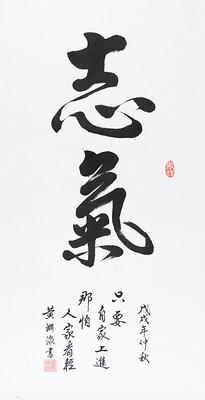 志氣
戊戌年仲秋
只要
自家上進
那怕
人家看輕
黃湖深書